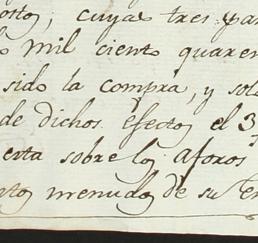 ostos, cuyas tres par
mil ciento quaren
sido la compra, y sol
de dichos efectos el 3
erta sobre los aforos
tos menudos de su